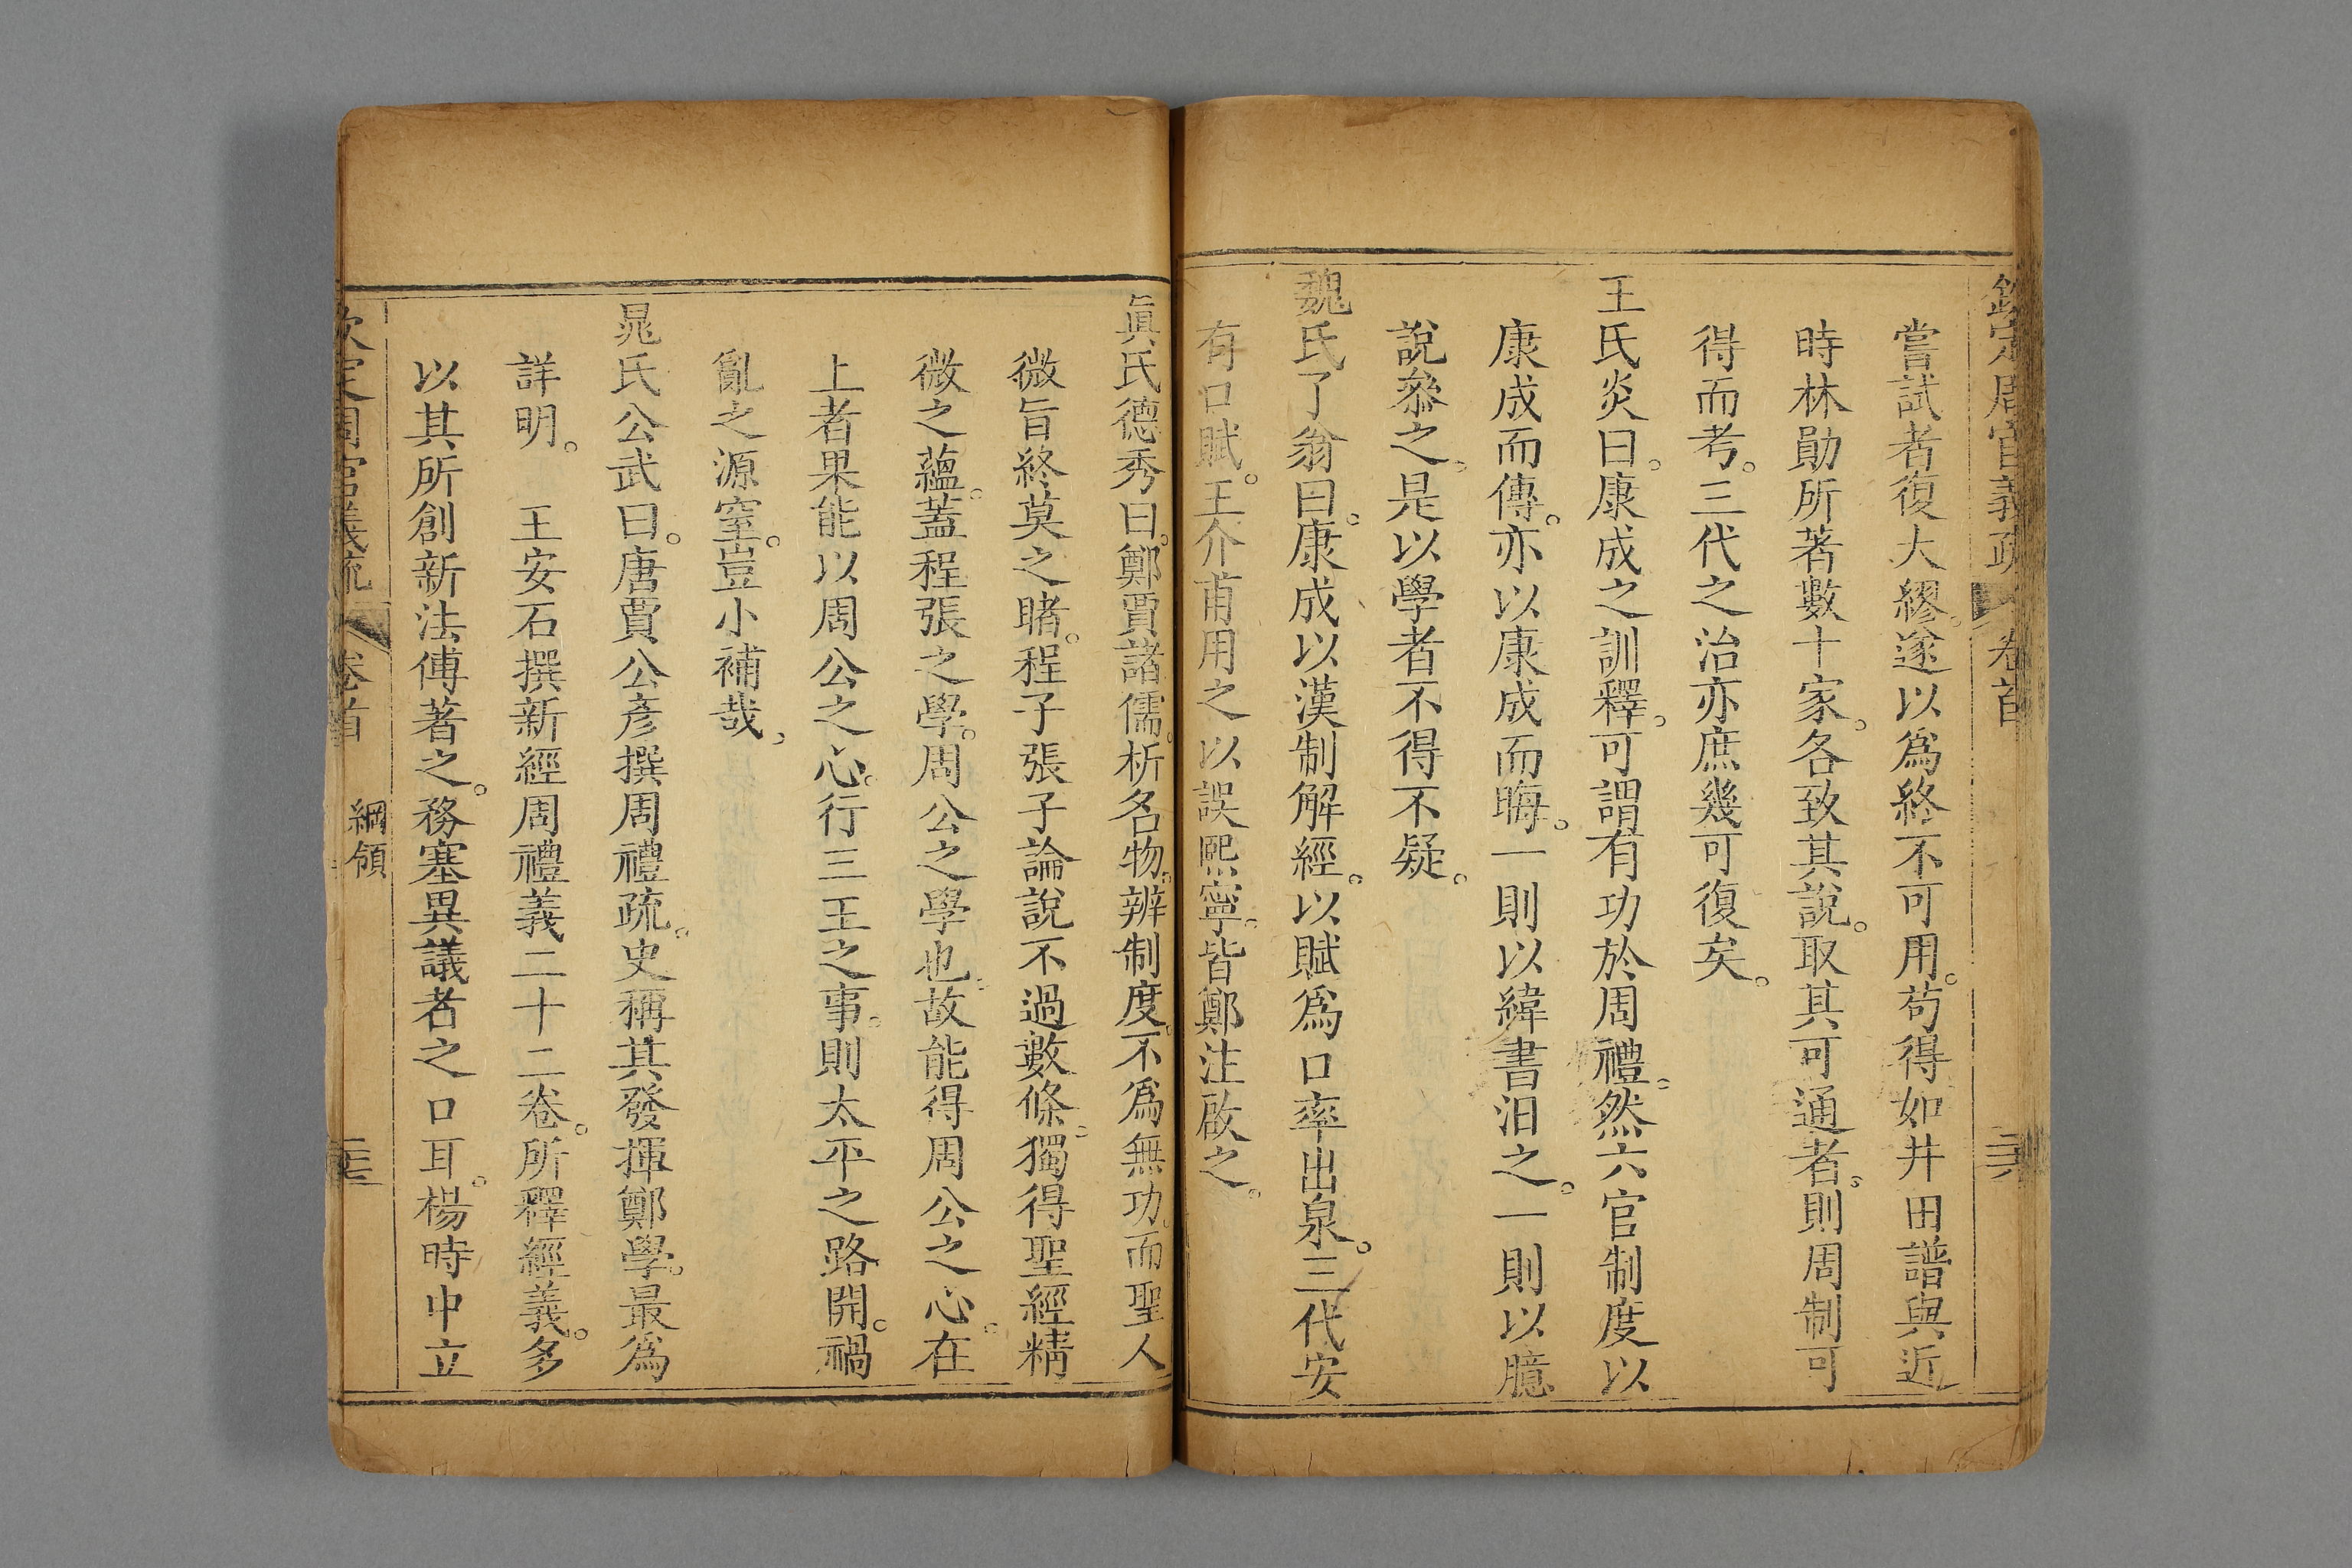 欽定周官義疏 卷首
嘗試者復大繆。遂以爲終不可用。苟得如井田譜與近
時林勛所著數十家。各致其說。取其可通者。則周制可
得而考。三代之治亦庶幾可復矣。
王氏炎曰。康成之訓釋。可謂有功於周禮。然六官制度以
康成而傳。亦以康成而晦。一則以緯書汨之。一則以臆
說參之。是以學者不得不疑。
魏氏了翁曰。康成以漢制解經。以賦爲口率出泉。三代安
有口賦。王介甫用之以誤熙寧。皆鄭注啟之。
眞氏德秀曰。鄭賈諸儒。析名物。辨制度。不爲無功。而聖人
微旨終莫之睹。程子張子論說不過數條。獨得聖經精
微之蘊。蓋程張之學。周公之學也。故能得周公之心。在
上者果能以周公之心。行三王之事。則太平之路開。禍
亂之源窒。豈小補哉。
晁氏公武曰。唐賈公彥撰周禮疏。史稱其發揮鄭學。最爲
詳明。 王安石撰新經周禮義二十二卷。所釋經義。多
以其所創新法傅著之。務塞異議者之口耳。楊時中立
欽定周官義疏 卷首 綱領